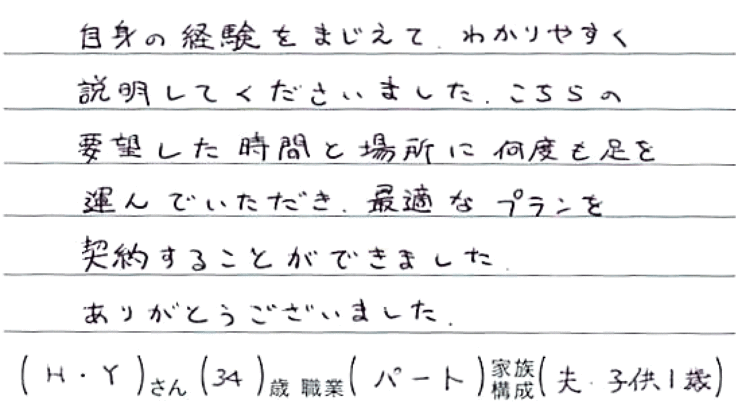 自身の経験をまじえて、わかりやすく
説明してくださいました。こちらの
要望した時間と場所に何度も足を
運んでいただき、最適なプランを
契約することができました。
ありがとうございました。
(H・Y)さん(34)歳 職業(パート)家族構成(夫・子供1歳)